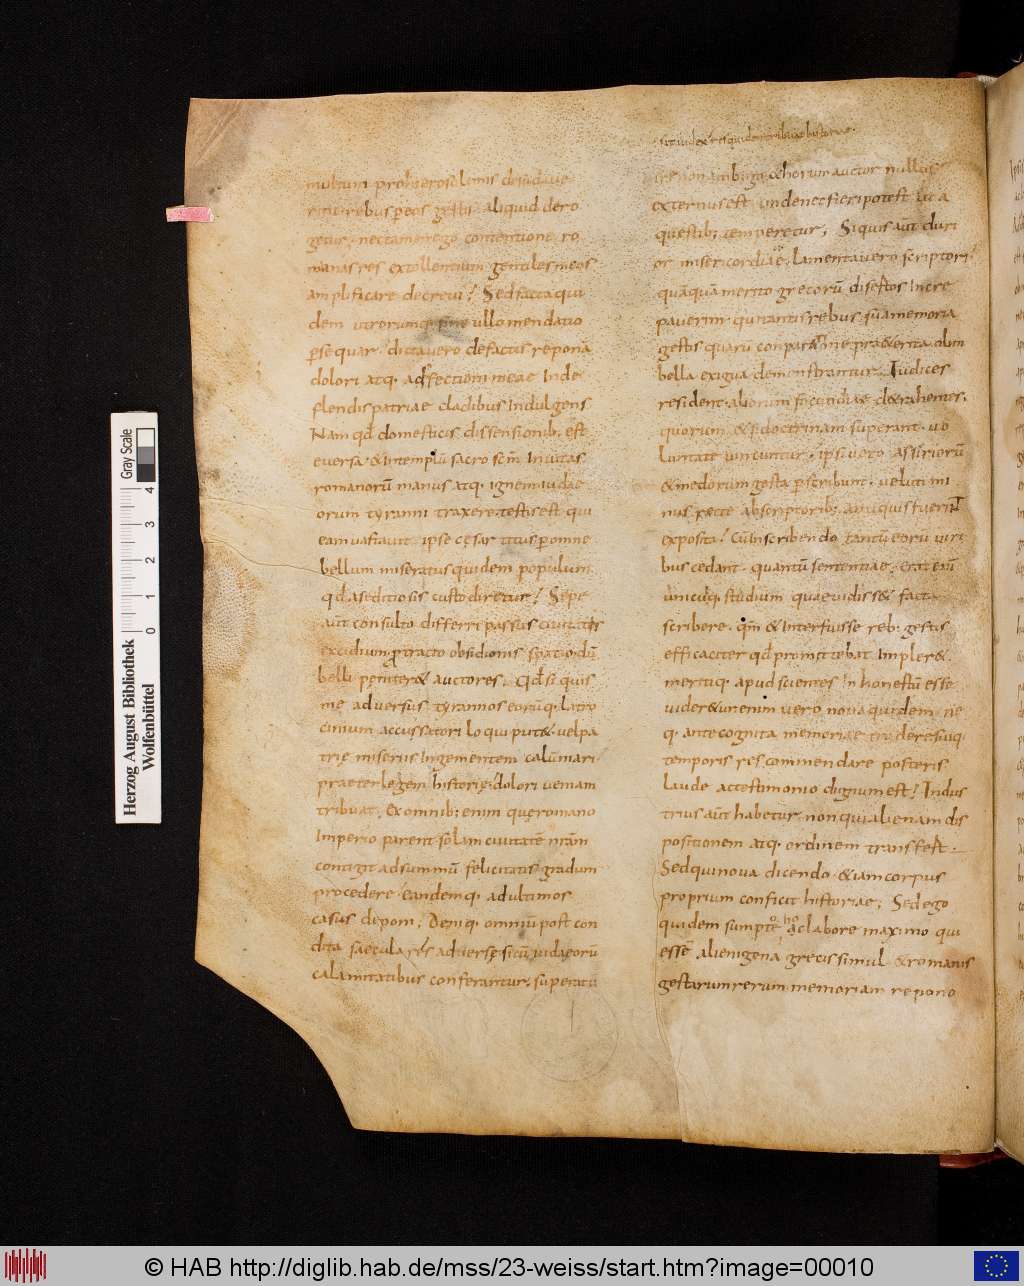 siq iudex
multum pro hierosolimis
ritu rebus p eos gestis aliquid dero
getur nectamen ego contentione ro
manas res extollentium gentiles meos
amplificare decrevi! Sed facta qui
dem utrorumq; sine ullo mendatio
psequar. dicta vero de factis reponā
dolori atq; adfectioni meae Inde
flendis patriae cladibus Indulgens
Nam qđ domesticis dissensionib; est
eversa & Intemplū sacro scm̄ Invitas
romanorū manus atq; ignem iudae
orum tyranni traxere testis est qui
eam vastavit ipse cęsar titus p omne
bellum miseratus quidem populum
qđ a seditiosis custodiretur! Sepe
aut̄ consulto differri passus civitatis
excidium ptracto obsidionis spatio dū
belli peniter& auctores. Qđ si quis
me adversus tyrannos eorūq; latro
cinium accussatori loqui put& vel pa
trię miseriis Ingementem calūniari
praeter legem historię dolori veniam
tribuat; Ex omnib; enim quę romano
Imperio parent solam civitatē nr̄am
contigit ad summū felicitatis gradum
procedere eandemq; ad ultimos
casus deponi! Deniq; omniū post con
dita saecula res adversę si cū iudaeorū
calamitatibus conferantur, superatū
iri non ambigo & horum auctor nullus
externus est unde nec fieri potest ut a
questib; temperetur; Si quis aut̄ duri
or misericordiae, lamenta vero scriptori
quāquā merito grecorū disertos Incre
paverim qui tantis rebus sua memoria
gestis quarū conparatione praeterita olim
bella exigua demonstrantur, Iudices
resident aliorum facundiae detrahentes,
quorum & si doctrinam superant vo
luntate vincuntur. ipsi vero assiriorū
& medorum gesta pscribunt. veluti mi
nus recte ab scriptorib; antiquis fuerint
exposita! Cū In scribendo tantū eorū viri
bus cedant. quantū sententiae, erat enī
unicuiq; studium quae vidiss& facta
scribere. qm̄ & Interfuisse reb; gestis
efficaciter qđ promittebat Impler&
mentiq; apud scientes In honestū esse
vider&ur enim vero nova quidem ne
q; ante cognita memoriae tradere suiq;
temporis res commendare posteris
laude ac testimonio dignum est! Indus
trius aut̄ habetur, non qui alienam dis
positionem atq; ordinem transfert.
Sed qui nova dicendo &iam corpus
proprium conficit historiae; Sed ego
quidem sumptu ac labore maximo qui
essē alienigena grecis simul & romanis
gestarum rerum memoriam repono
Herzog August Bibliothek
Wolfenbüttel
0 1 2 3 4
Gray Scale
© HAB http://diglib.hab.de/mss/23-weiss/start.htm?image=00010